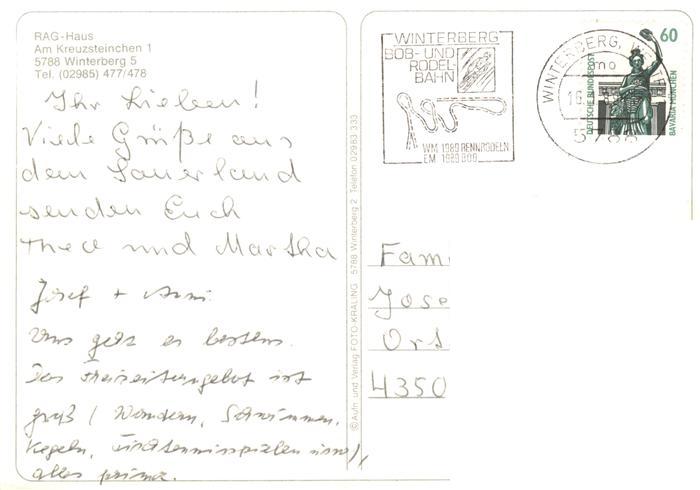 RAG-Haus
Am Kreuzsteinchen 1
5788 Winterberg 5
Tel. (02985) 477/478
Ihr Lieben!
Viele Grüße aus
dem Sauerland
senden Euch
Theo und Martha
Josef + Anni.
Uns geht es bestens.
Das Freizeitangebot ist
groß (Wandern, Schwimmen,
Kegeln, Tischtennisspielen usw),
alles prima.
© Aufn. und Verlag FOTO-KRALING 5788 Winterberg 2 Telefon 02983 333
WINTERBERG
BOB- UND
RODEL-
BAHN
WM 1989 RENNRODELN
EM 1989 BOB
WINTERBERG,
mo
5788
60
DEUTSCHE BUNDESPOST
BAVARIA MÜNCHEN
Fam
Jose
Ort
4350